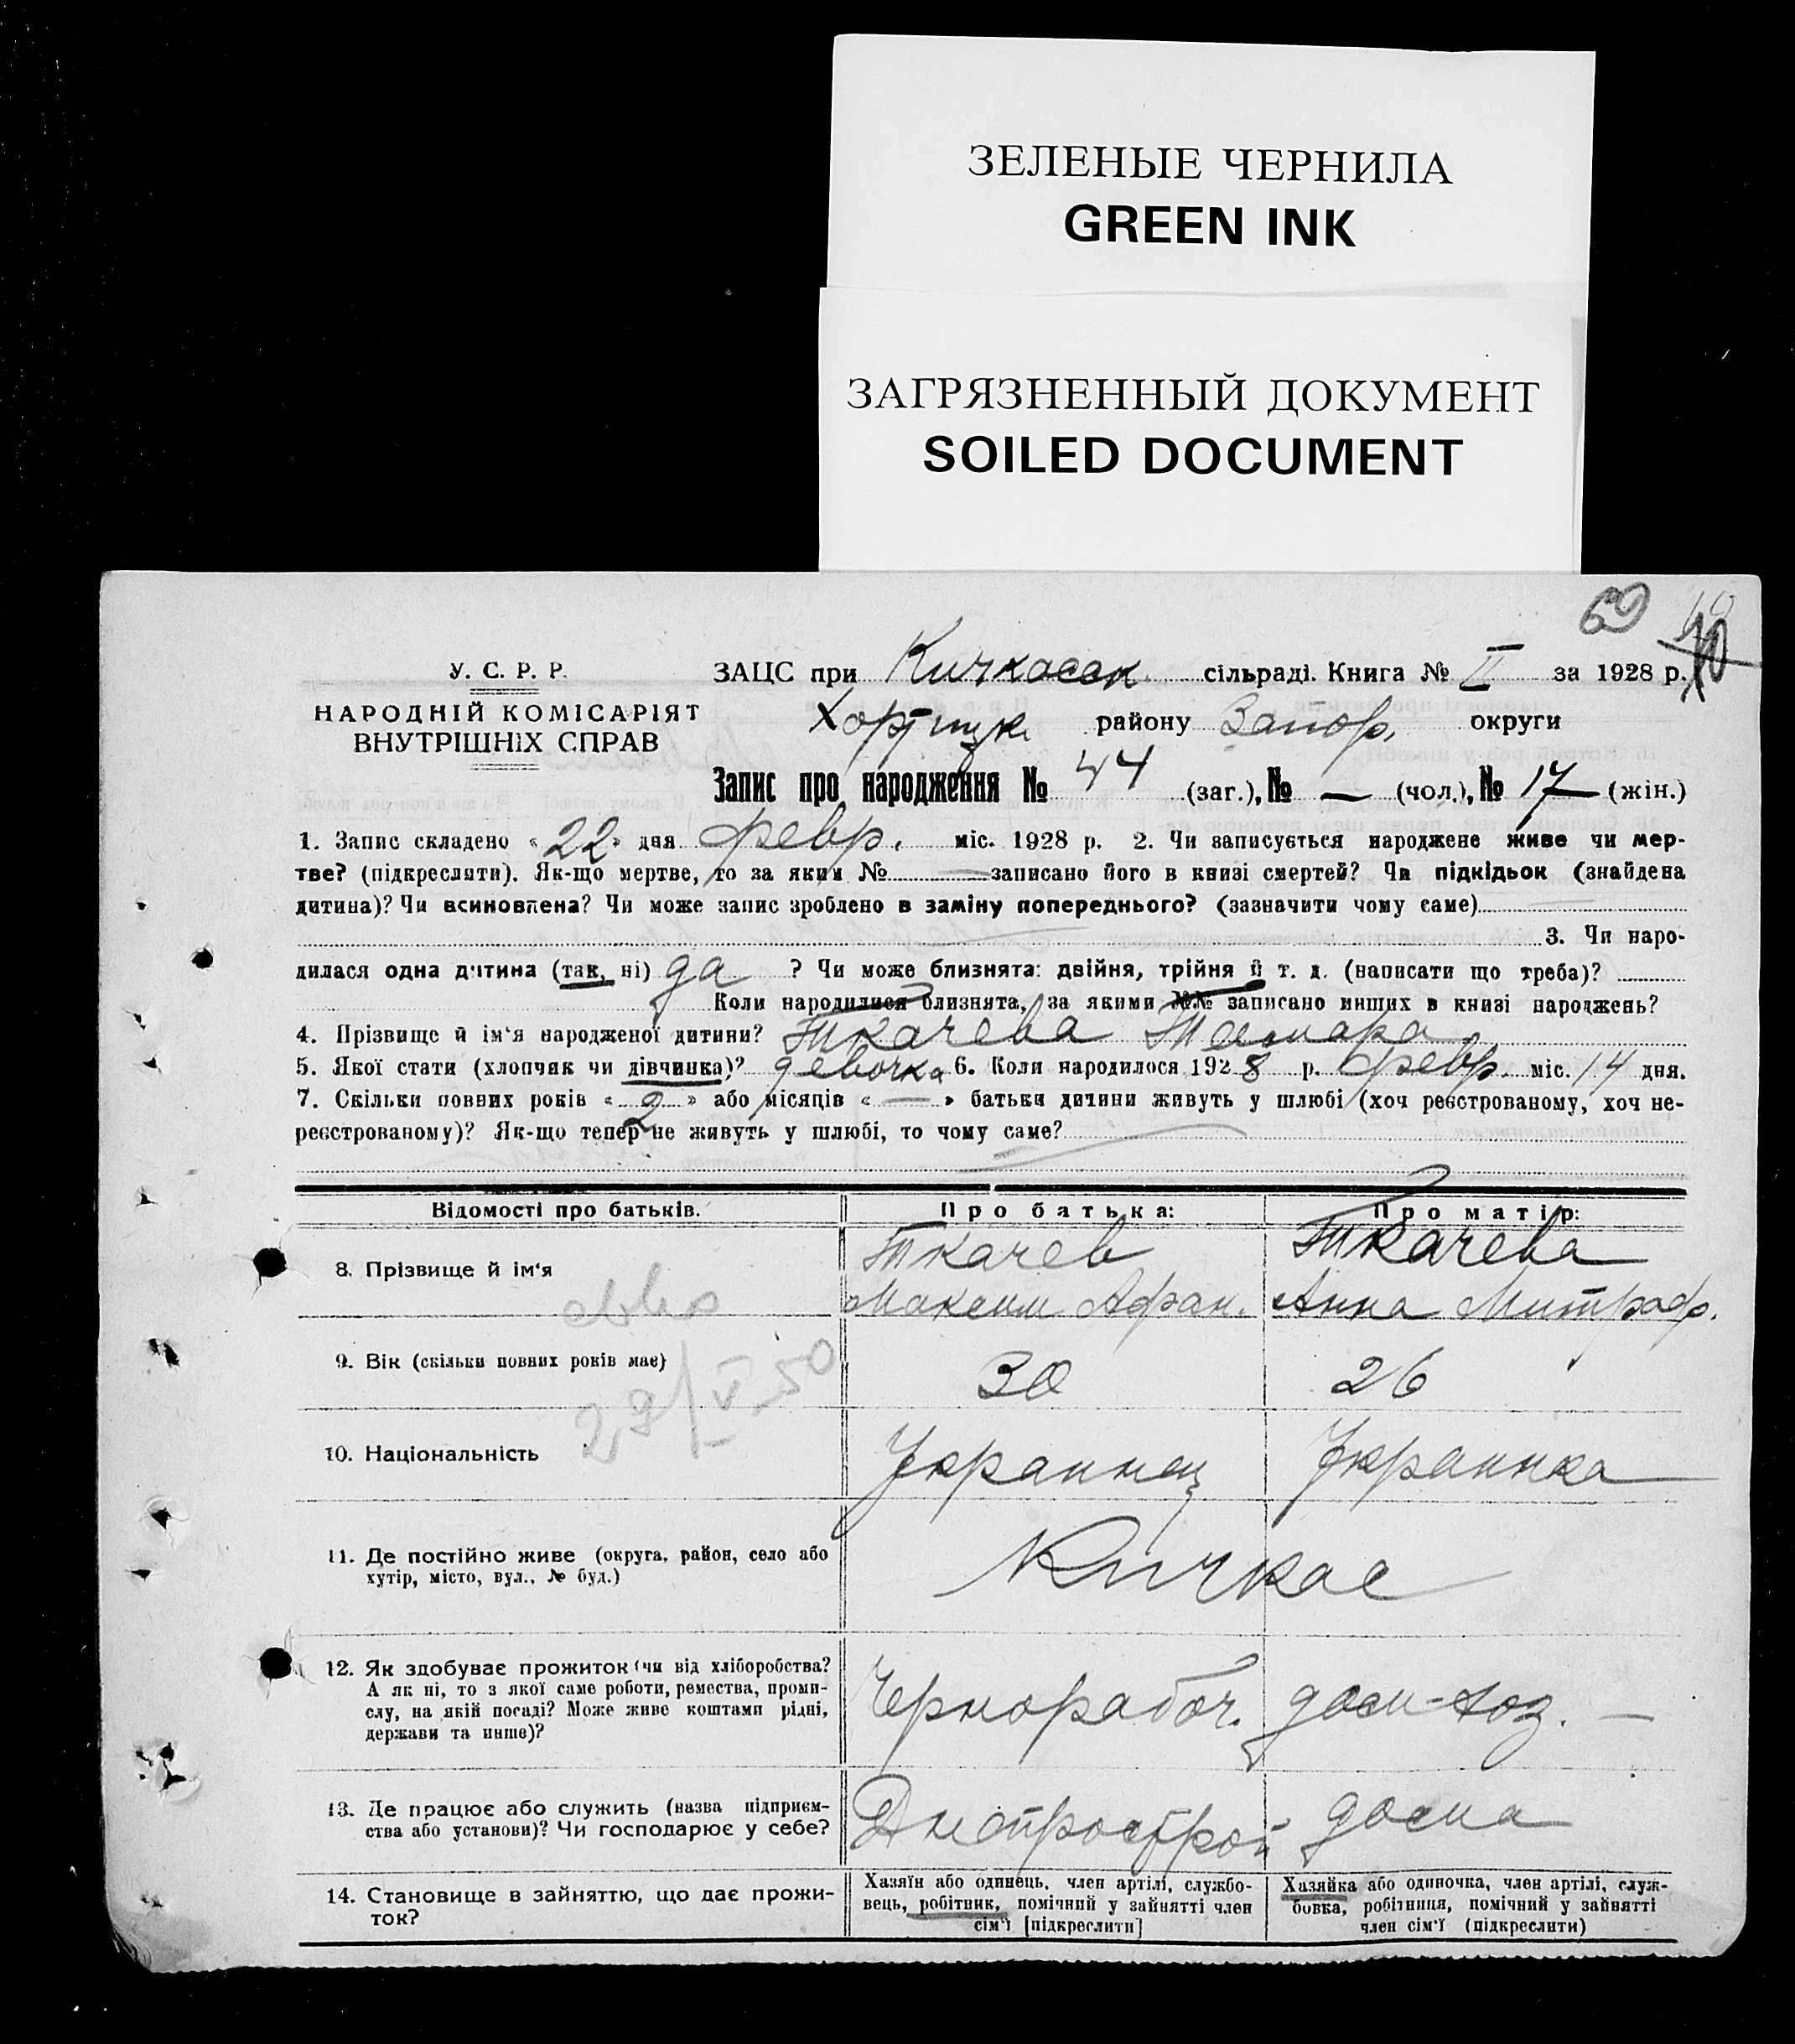 ЗЕЛЕНЫЕ ЧЕРНИЛА
GREEN INK
ЗАГРЯЗНЕННЫЙ ДОКУМЕНТ
SOILED DOCUMENT
69
У. С. Р. Р.
НАРОДНІЙ КОМІСАРІЯТ
ВНУТРІШНІХ СПРАВ
ЗАЦС при Кичкасск сільраді. Книга № II за 1928 р.
Хортицк району Запор. округи
Запис про народження № 44 (заг.), № — (чол.), № 17 (жін.)
1. Запис складено «22» дня февр. міс. 1928 р. 2. Чи записується народжене живе чи мер-
тве? (підкреслити). Як-що мертве, то за яким № — записано його в книзі смертей? Чи підкідьок (знайдена
дитина)? Чи всиновлена? Чи може запис зроблено в заміну попереднього? (зазначити чому саме)
3. Чи наро-
дилася одна дитина (так, ні) да ? Чи може близнята: двійня, трійня й т. д. (написати що треба)?
Коли народилися близнята, за якими №№ записано инших в книзі народжень?
4. Прізвище й ім‘я народженої дитини? Ткачева Тамара
5. Якої стати (хлопчик чи дівчинка)? девочка 6. Коли народилося 1928 р. февр. міс. 14 дня.
7. Скільки повних років «2» або місяців «—» батьки дитини живуть у шлюбі (хоч реєстрованому, хоч не-
реєстрованому)? Як-що тепер не живуть у шлюбі, то чому саме?
Відомості про батьків. Про батька: Про матір:
8. Прізвище й ім‘я Ткачев Ткачева
Максим Афан. Анна Митроф.
9. Вік (скільки повних років має) 30 26
29/V-50
10. Національність Украинец Украинка
11. Де постійно живе (округа, район, село або
хутір, місто, вул., № буд.) Кичкас
12. Як здобуває прожиток (чи від хліборобства?
А як ні, то з якої саме роботи, ремества, проми-
слу, на якій посаді? Може живе коштами рідні,
держави та инше)? Чернорабоч. дом-хоз. —
13. Де працює або служить (назва підприєм-
ства або установи)? Чи господарює у себе? Днепрострой дома
14. Становище в зайняттю, що дає прожи-
ток?
Хазяїн або одинець, член артілі, службо-
вець, робітник, помічний у зайнятті член
сім‘ї [підкреслити]
Хазяйка або одиночка, член артілі, служ-
бовка, робітниця, помічний у зайнятті
член сім‘ї (підкреслити)